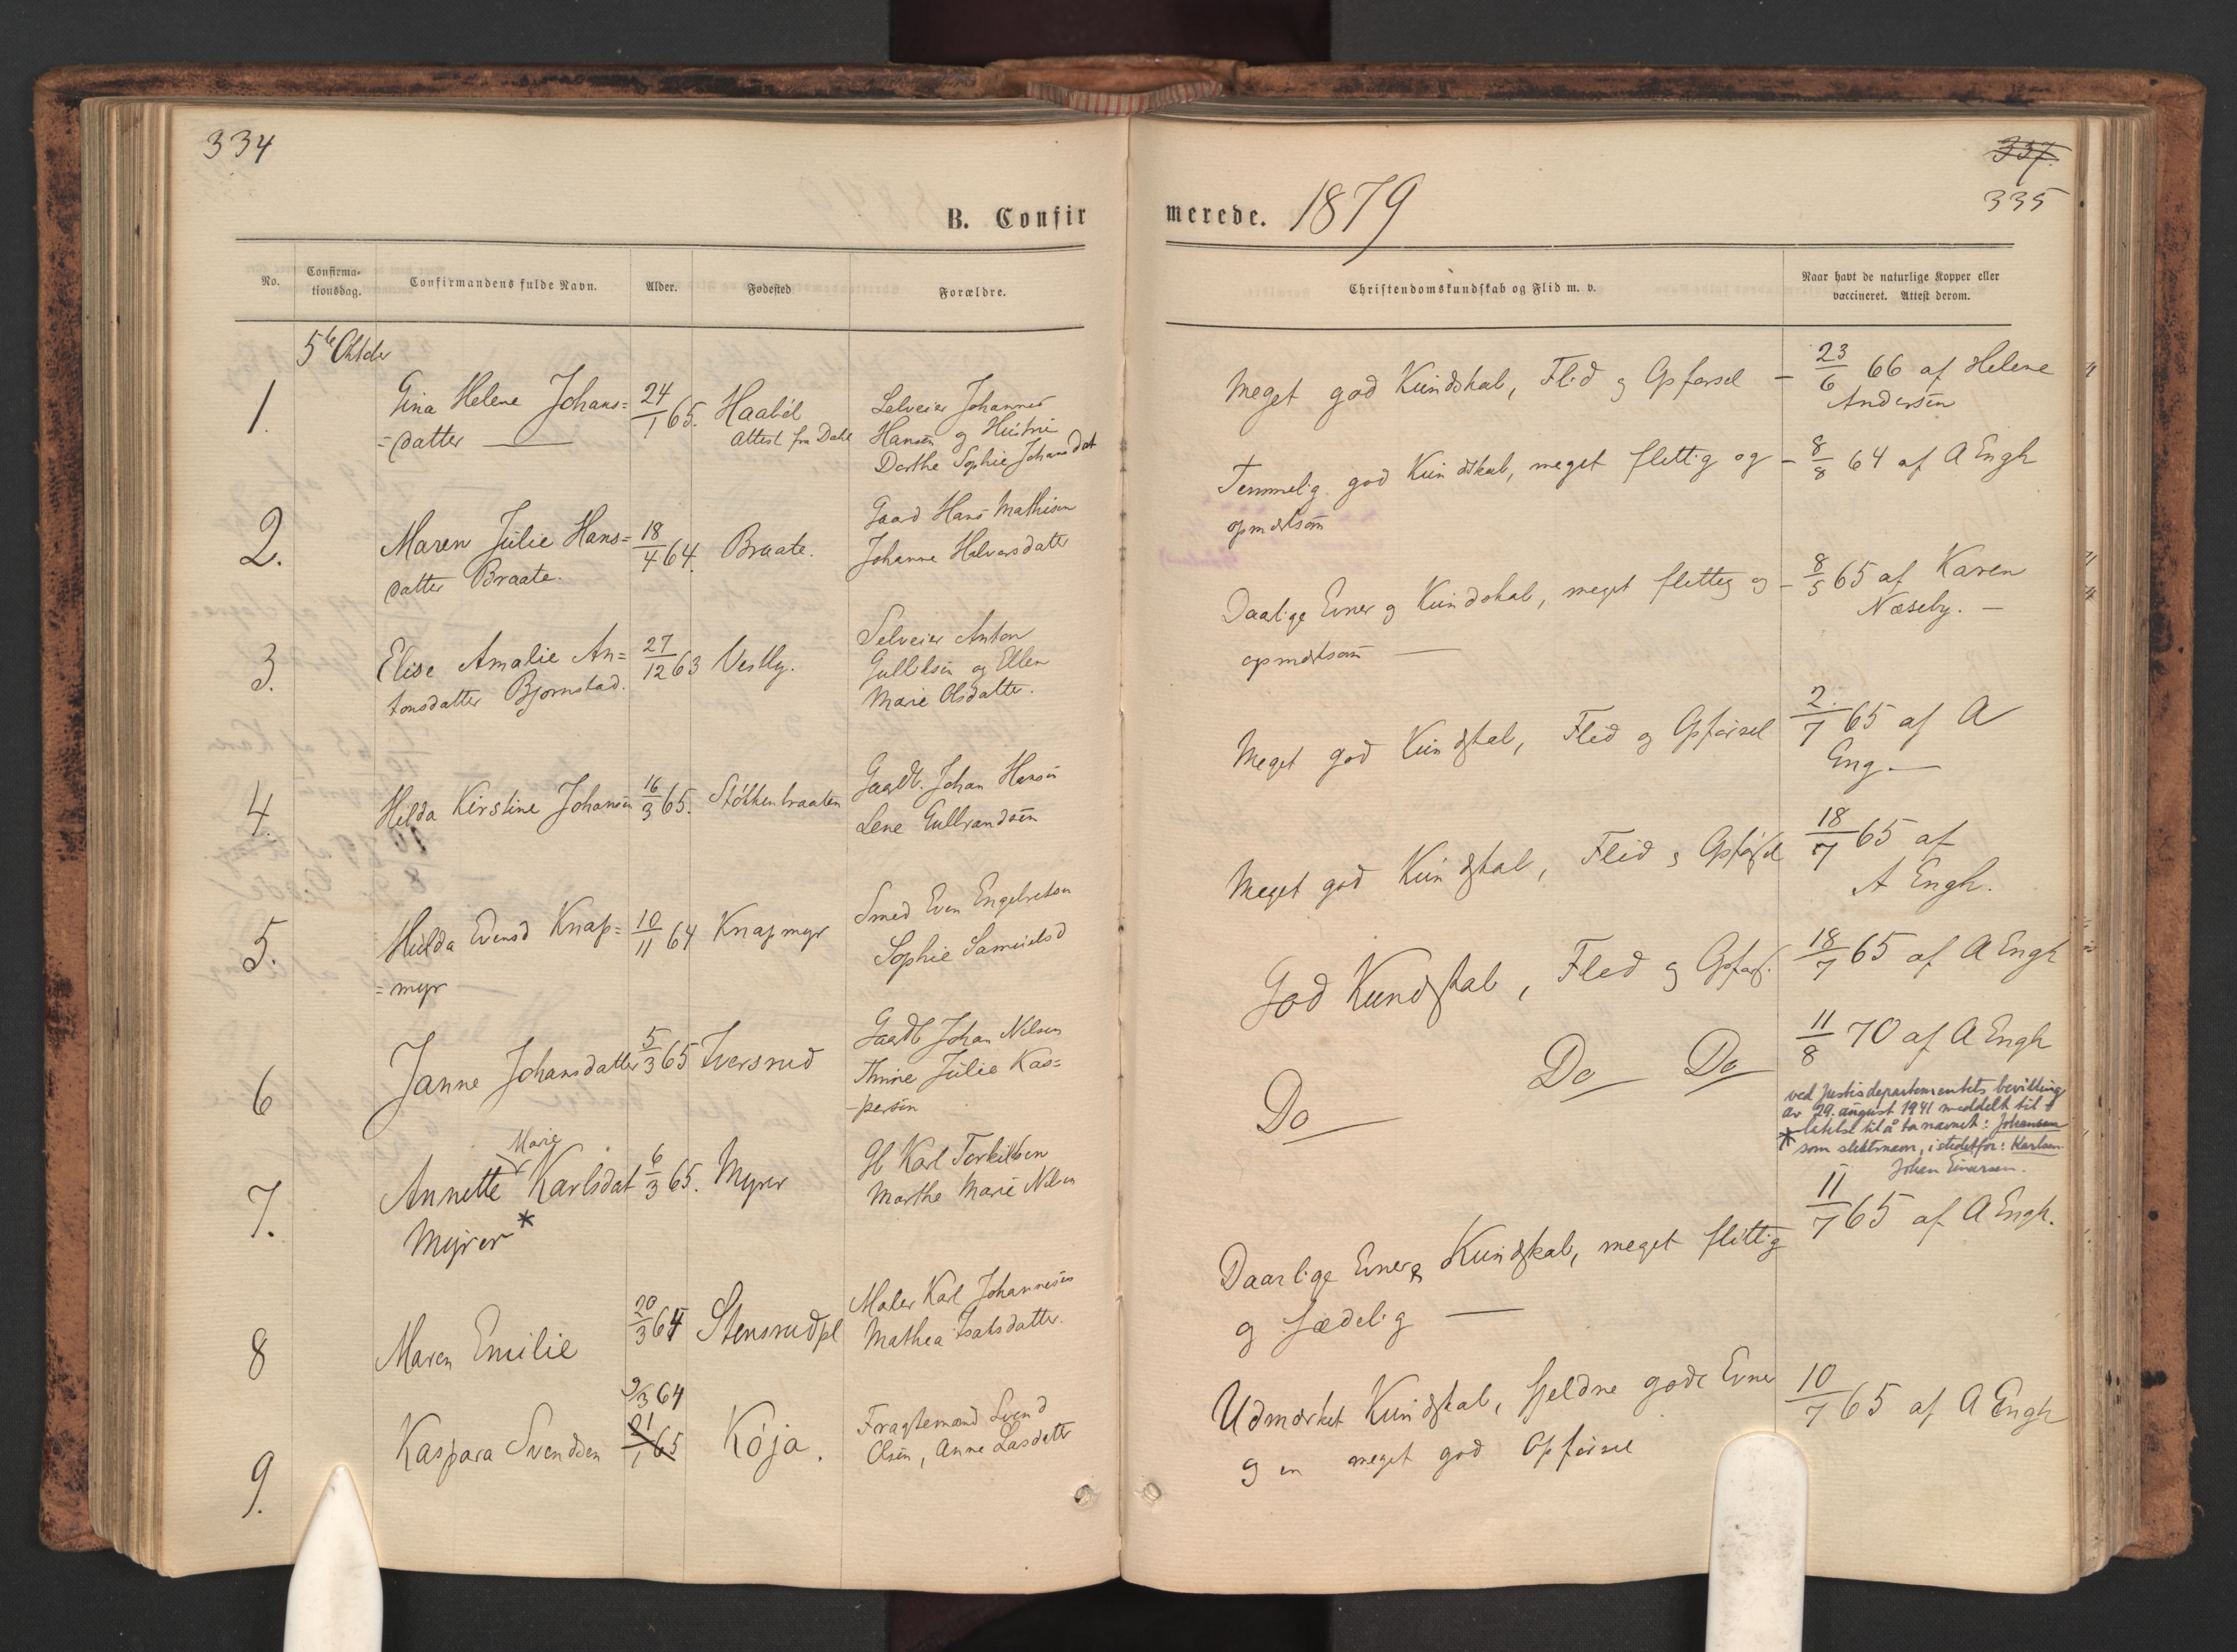 334
B. Confir
No.
Confirma-
tionsdag.
Confirmandens fulde Navn.
Alder.
Fødested
Forældre.
5te Oktober
1.
Gina Helene Johans=
=datter
24/1 65.
Haabøl
Attest fra Dahl
Selveier Johannes
Hansen og Hustru
Dorthe Sophie Johansdat
2.
Maren Julie Hans=
datter Braate.
18/4 64.
Braate.
Gaard Hans Mathisen
Johanne Halvorsdatter
3.
Elise Amalie An=
tonsdatter Bjørnstad.
27/12 63
Vestby.
Selveier Anton
Gulliksen og Ellen
Marie Olsdatter.
4.
Hilda Kirstine Johansen
16/3 65.
Stokkenbraaten
Gaardb. Johan Hansen
Lene Gulbrandsen
5.
Hulda Evensd Knap=
=myr
10/11 64
Knapmyr
Smed Even Engebretsen
Sophie Samuelsd
6
Janne Johansdatter
5/3 65
Iversrud
Gaardb Johan Nilsen
Thrine Julie Kas=
-persen
7.
Marie
Annette Karlsdat
Myrer *
6/3 65.
Myrer
Gb Karl Terkildsen
Marthe Marie Nilsen
8
Maren Emilie
20/3 64
Stensrudpl
Maler Karl Johannesen
Mathea Isaksdatter.
9.
Kaspara Svendsen
9/3 64
21/1 65
Köja.
Fragtemand Svend
Olsen, Anne Larsdatter
337.
335
merede. 1879
Christendomskundskab og Flid m. v.
Naar havt de naturlige Kopper eller
vaccineret. Attest derom.
Meget god Kundskab, Flid og Opførsel
- 23/6 66 af Helene
Andersen
Temmelig god Kundskab, meget flittig og
opmerksom
- 8/8 64 af A Engh
Daarlige Evner og Kundskab, meget flittig og
opmerksom
- 8/5 65 af Karen
Næseby. -
Meget god Kundskab, Flid og Opførsel
2/7 65 af A
Eng.
Meget god Kundskab, Flid og Opførsel
18/7 65 af
A Engh.
God Kundskab, Flid og Opførs.
18/7 65 af A Engh
Do Do Do
11/8 70 af A Engh
ved Justisdepartementets bevilling
av 29. august 1941 meddelt til-
* latelse til å ta navnet: Johansen
som slektsnavn, istedetfor: Karlsen
Johan Einarsen.
Daarlige Evner og Kundskab, meget flittig
og sædelig
11/7 65 af A Engh.
Udmærket Kundskab, sjeldne gode Evner
og en meget god Opførsel
10/7 65 af A Engh